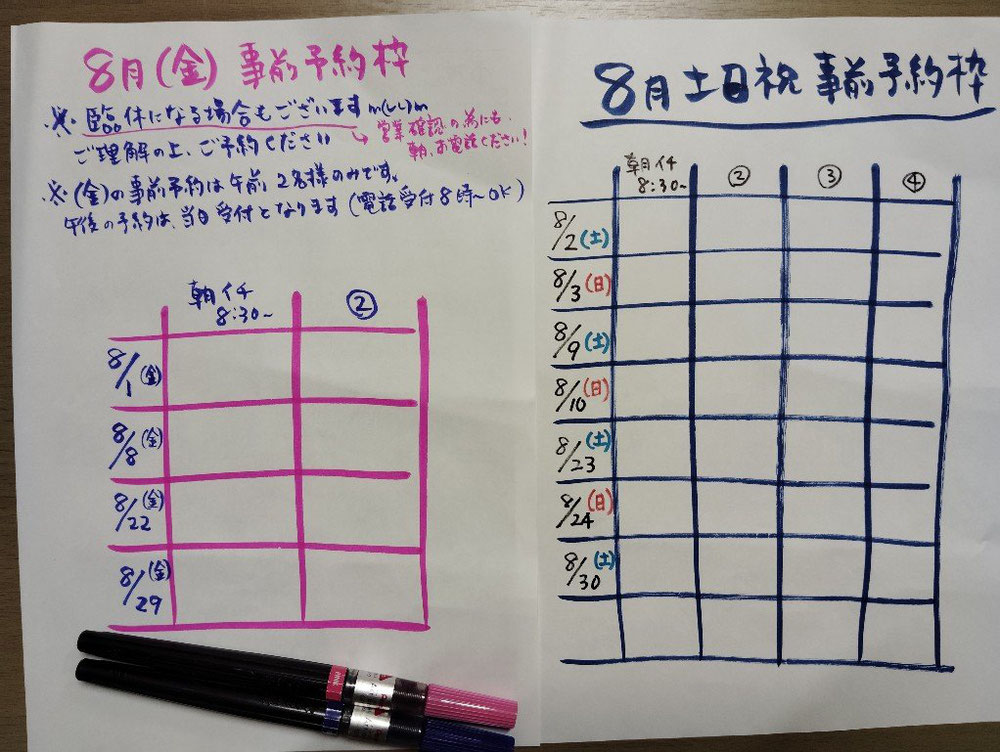 8月(金)事前予約枠
※臨休になる場合もございますm(_ _)m
→営業確認の為にも、
朝、お電話ください!
ご理解の上、ご予約ください
※(金)の事前予約は午前2名様のみです。
午後の予約は、当日受付となります(電話受付8時~OK)
朝イチ
8:30~
②
8/1(金)
8/8(金)
8/22(金)
8/29(金)
8月土日祝事前予約枠
朝イチ
8:30~
② ③ ④
8/2(土)
8/3(日)
8/9(土)
8/10(日)
8/23(土)
8/24(日)
8/30(土)
pink